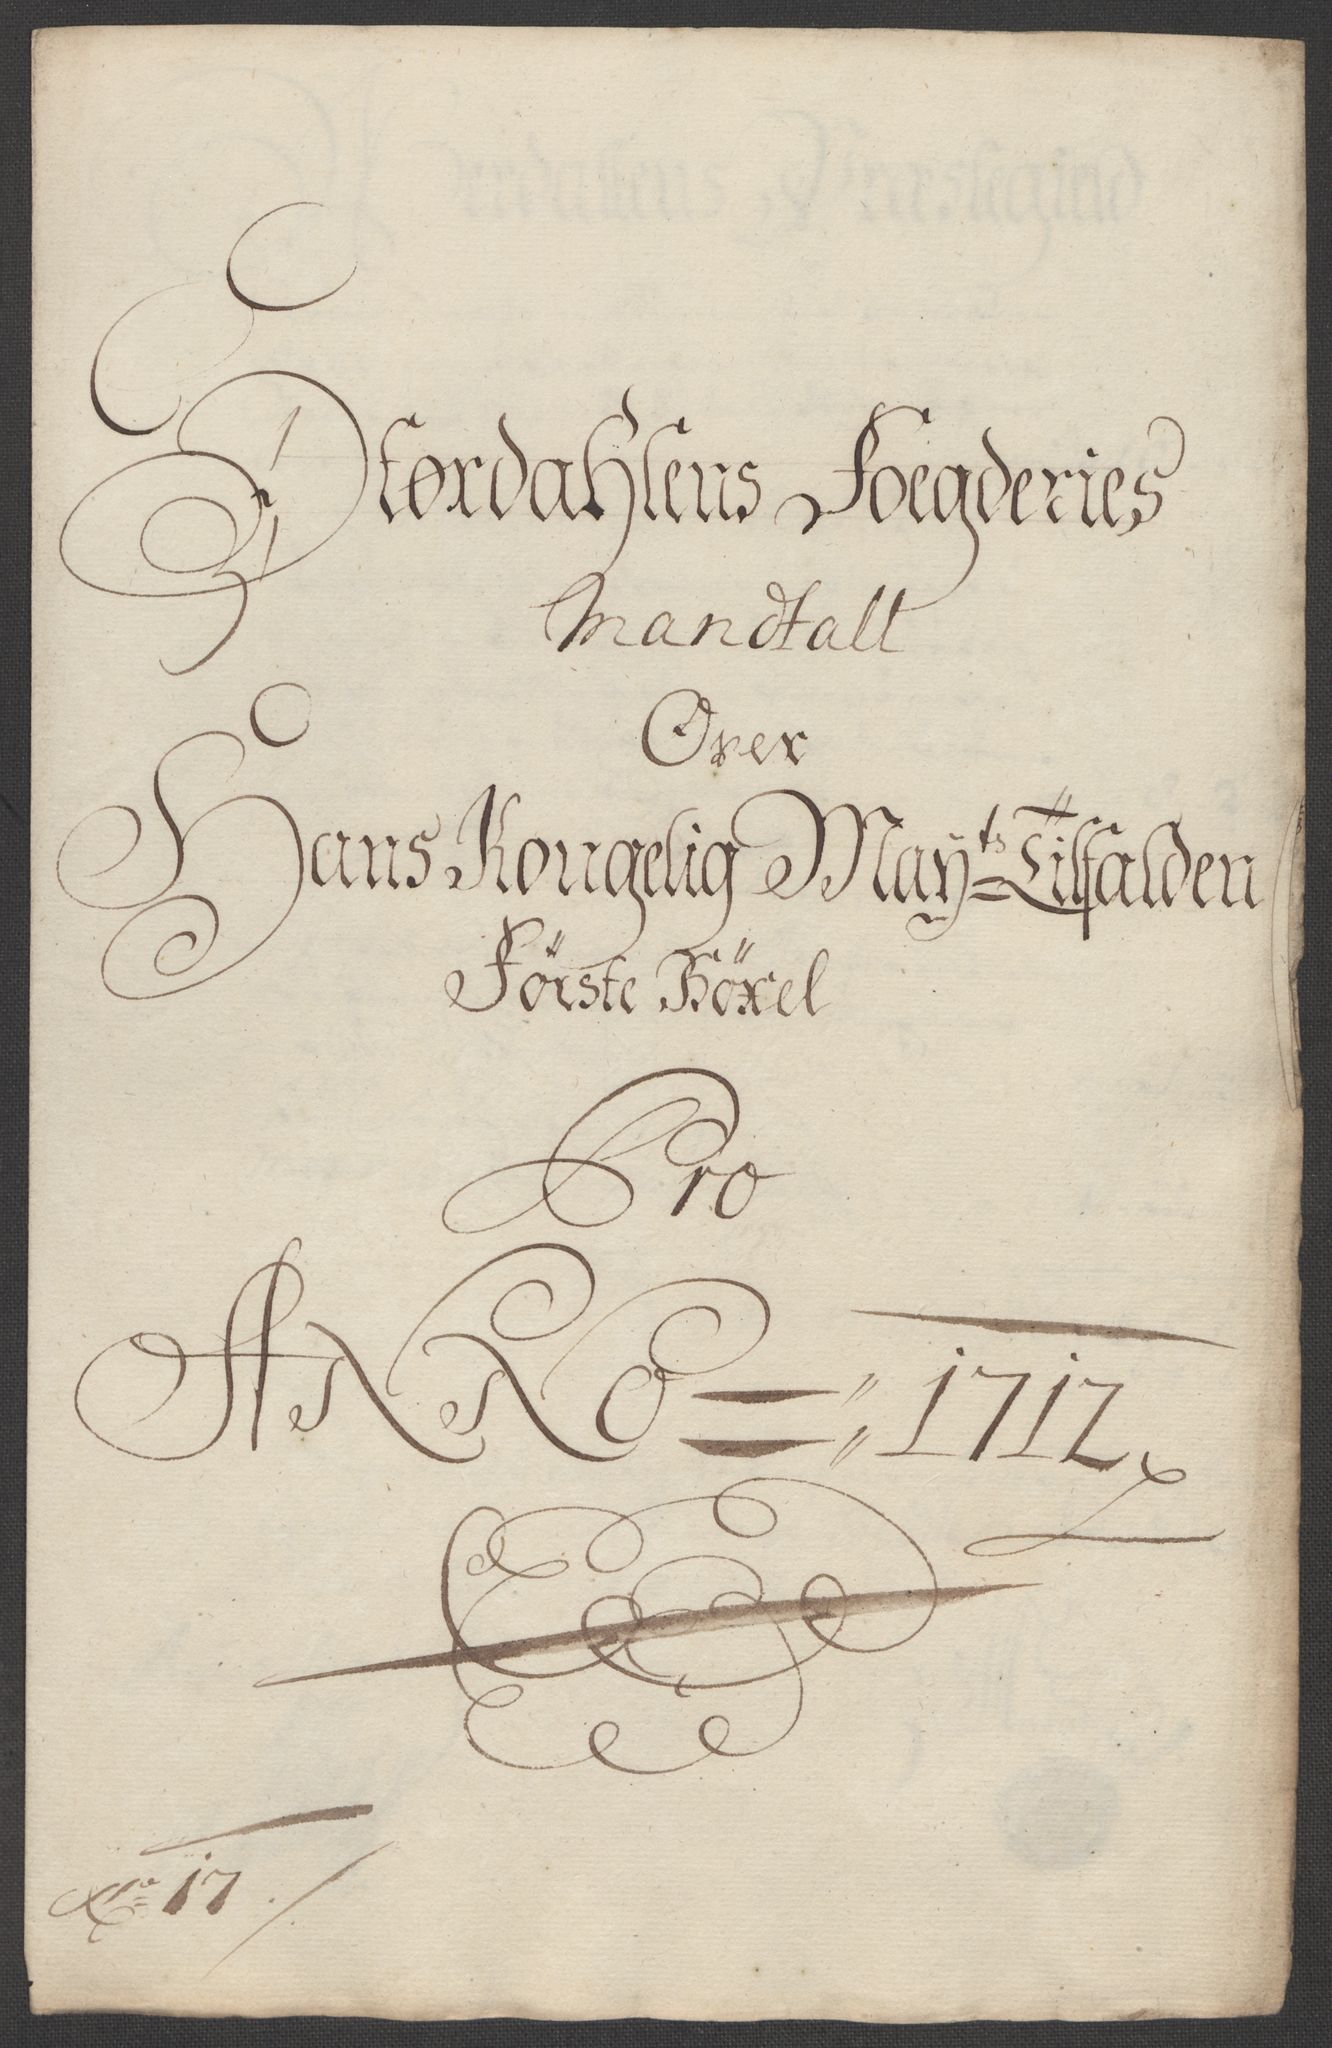 Størdahlens Foegderies
Mandtall
Over
Hans Kongelig Mayts Tilfalden
Förste Böxel
Pro
ANNO = 1712
No 17